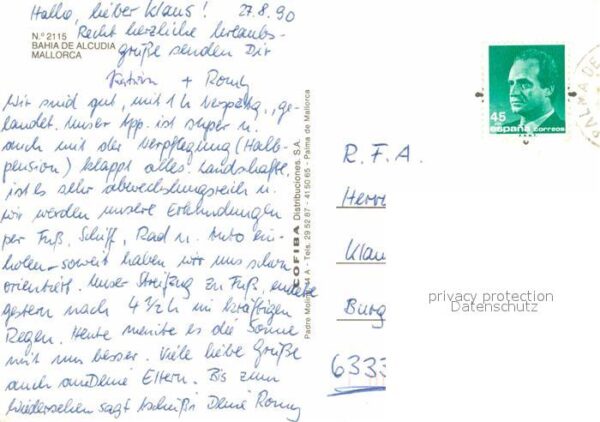 Hallo, lieber Klaus! 27.8.90
Recht herzliche Urlaubs-
grüße senden Dir
Katrin + Romy
N.º 2115
BAHIA DE ALCUDIA
MALLORCA
Wir sind gut, mit 1 h Verspätg., ge-
landet. Unser App. ist super u.
auch mit der Verpflegung (Halb-
pension) klappt alles. Landschaftl.
ist es sehr abwechslungsreich u.
wir werden unsere Erkundungen
per Fuß, Schiff, Rad u. Auto ein-
holen – soweit haben wir uns schon
orientiert. Unser Streifzug zu Fuß, endete
gestern nach 4 1/2 h im kräftigen
Regen. Heute meinte es die Sonne
mit uns besser. Viele liebe Grüße
auch an Deine Eltern. Bis zum
Wiedersehen sagt tschüß Deine Romy
COFIBA Distribuciones, S.A.
Padre Molina, 34 A - Tels. 29 52 87 - 41 50 65 - Palma de Mallorca
45
españa correos
PALMA DE
R.F.A.
Herrn
Klau
Burg
6333
privacy protection
Datenschutz